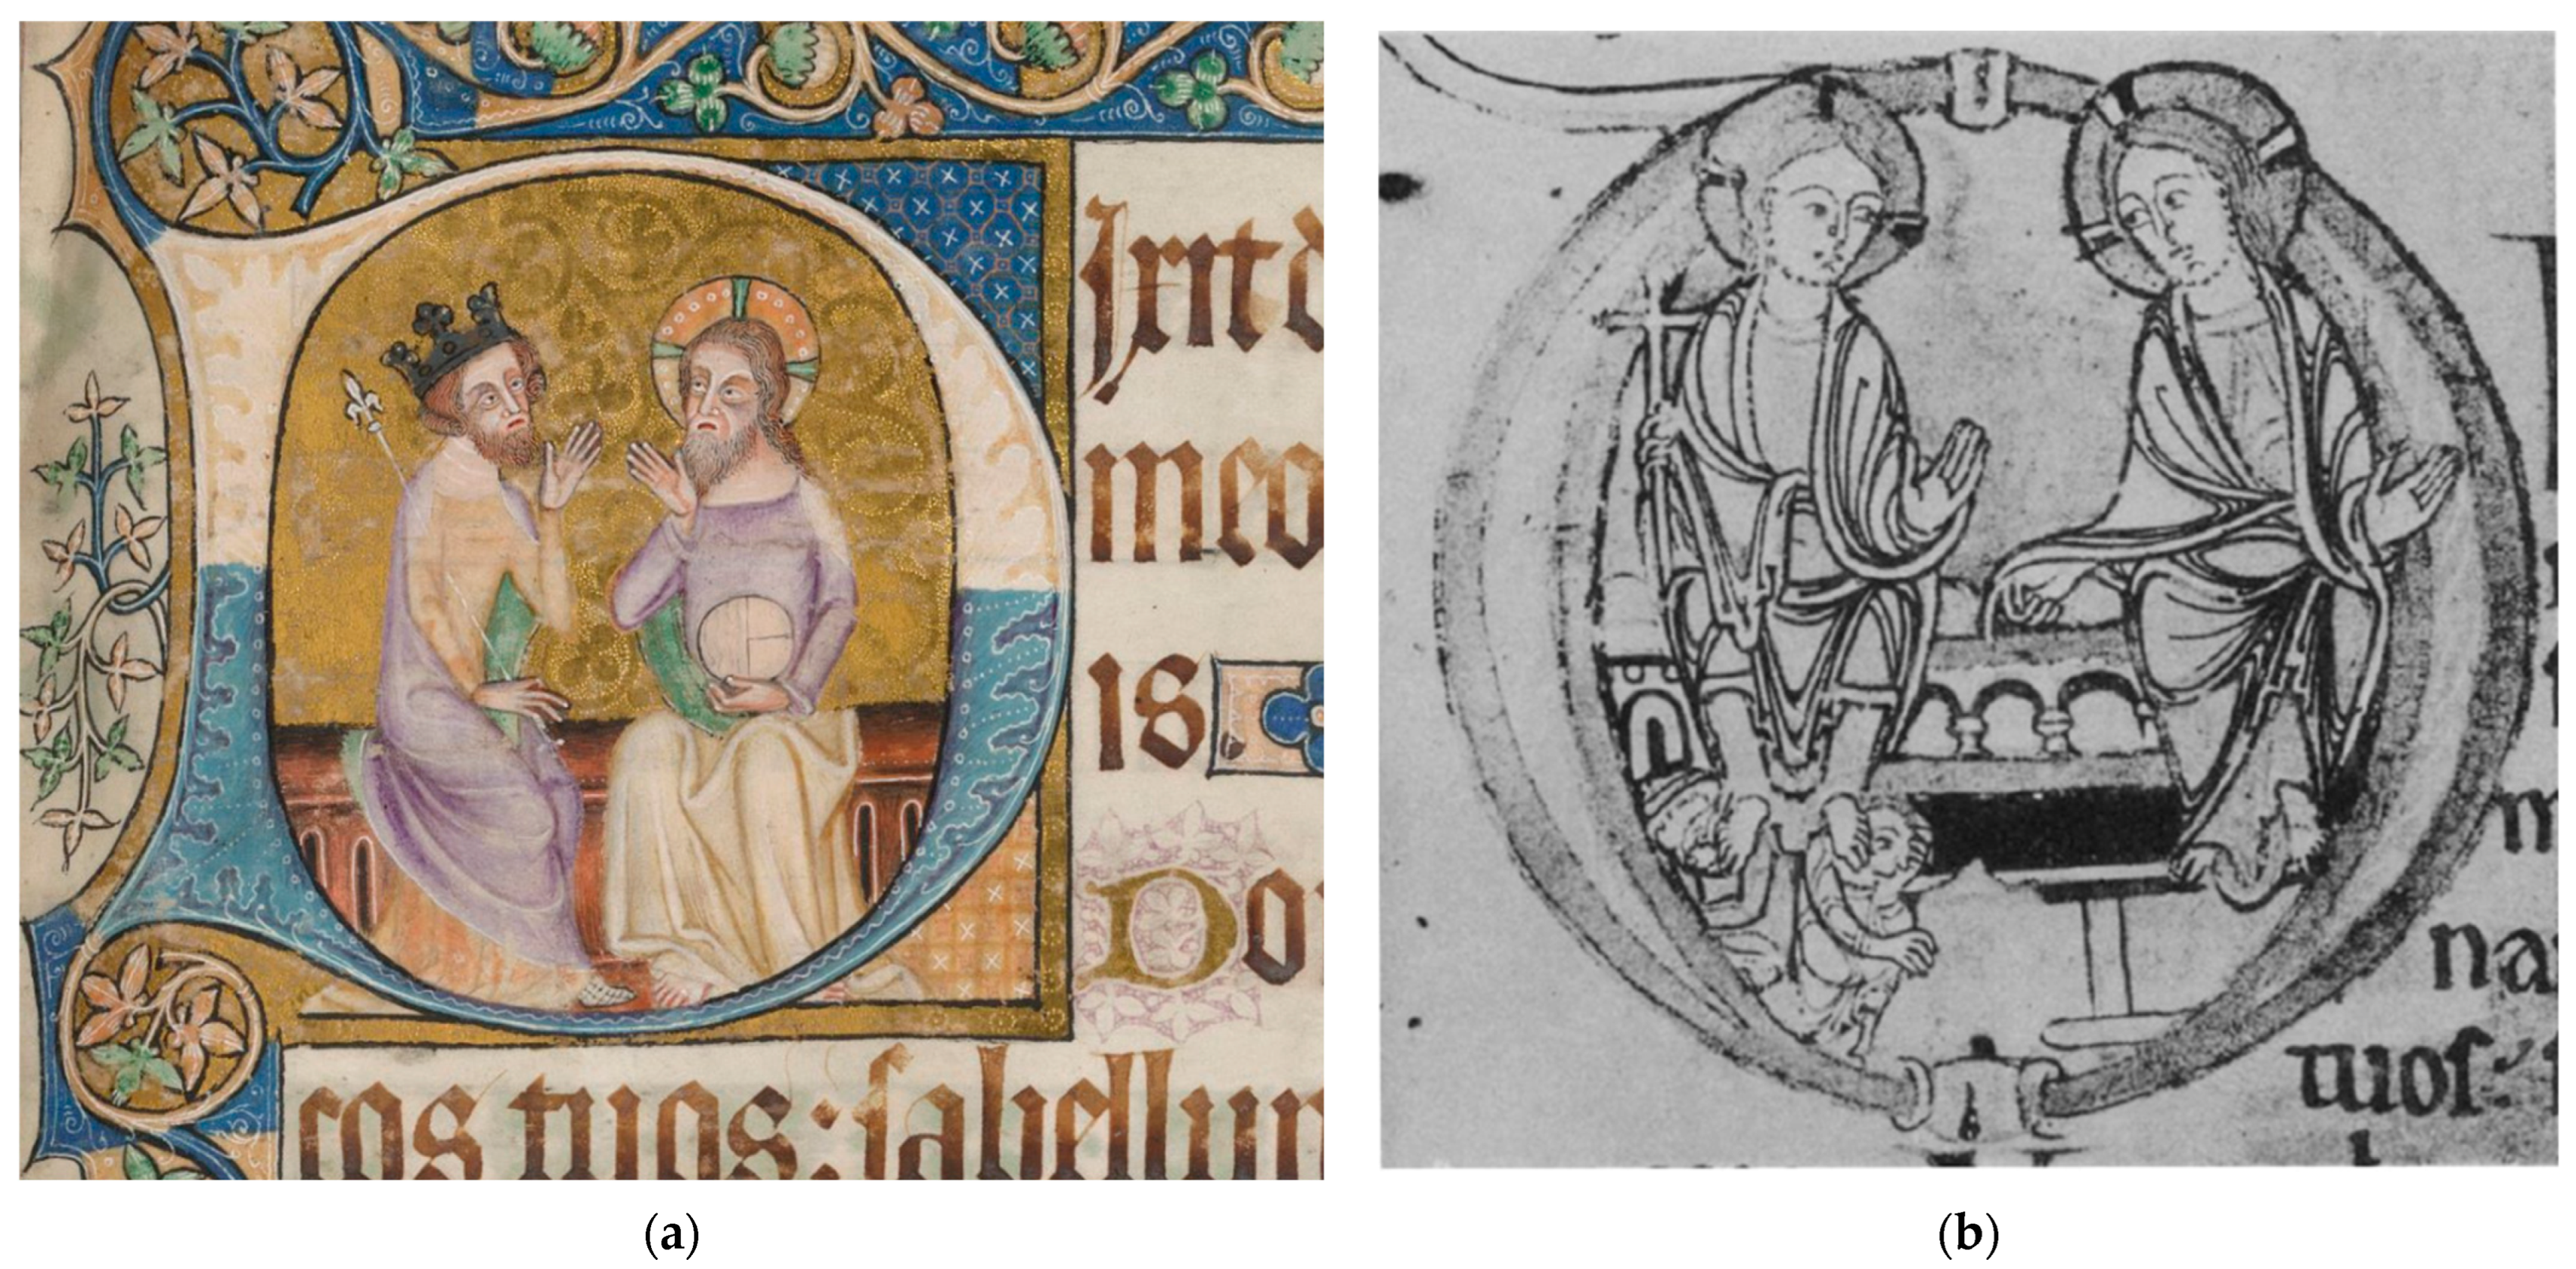 Dixit d
meo
is
Do
cos tuos: sabellu
m
na
tuos
(a)
(b)